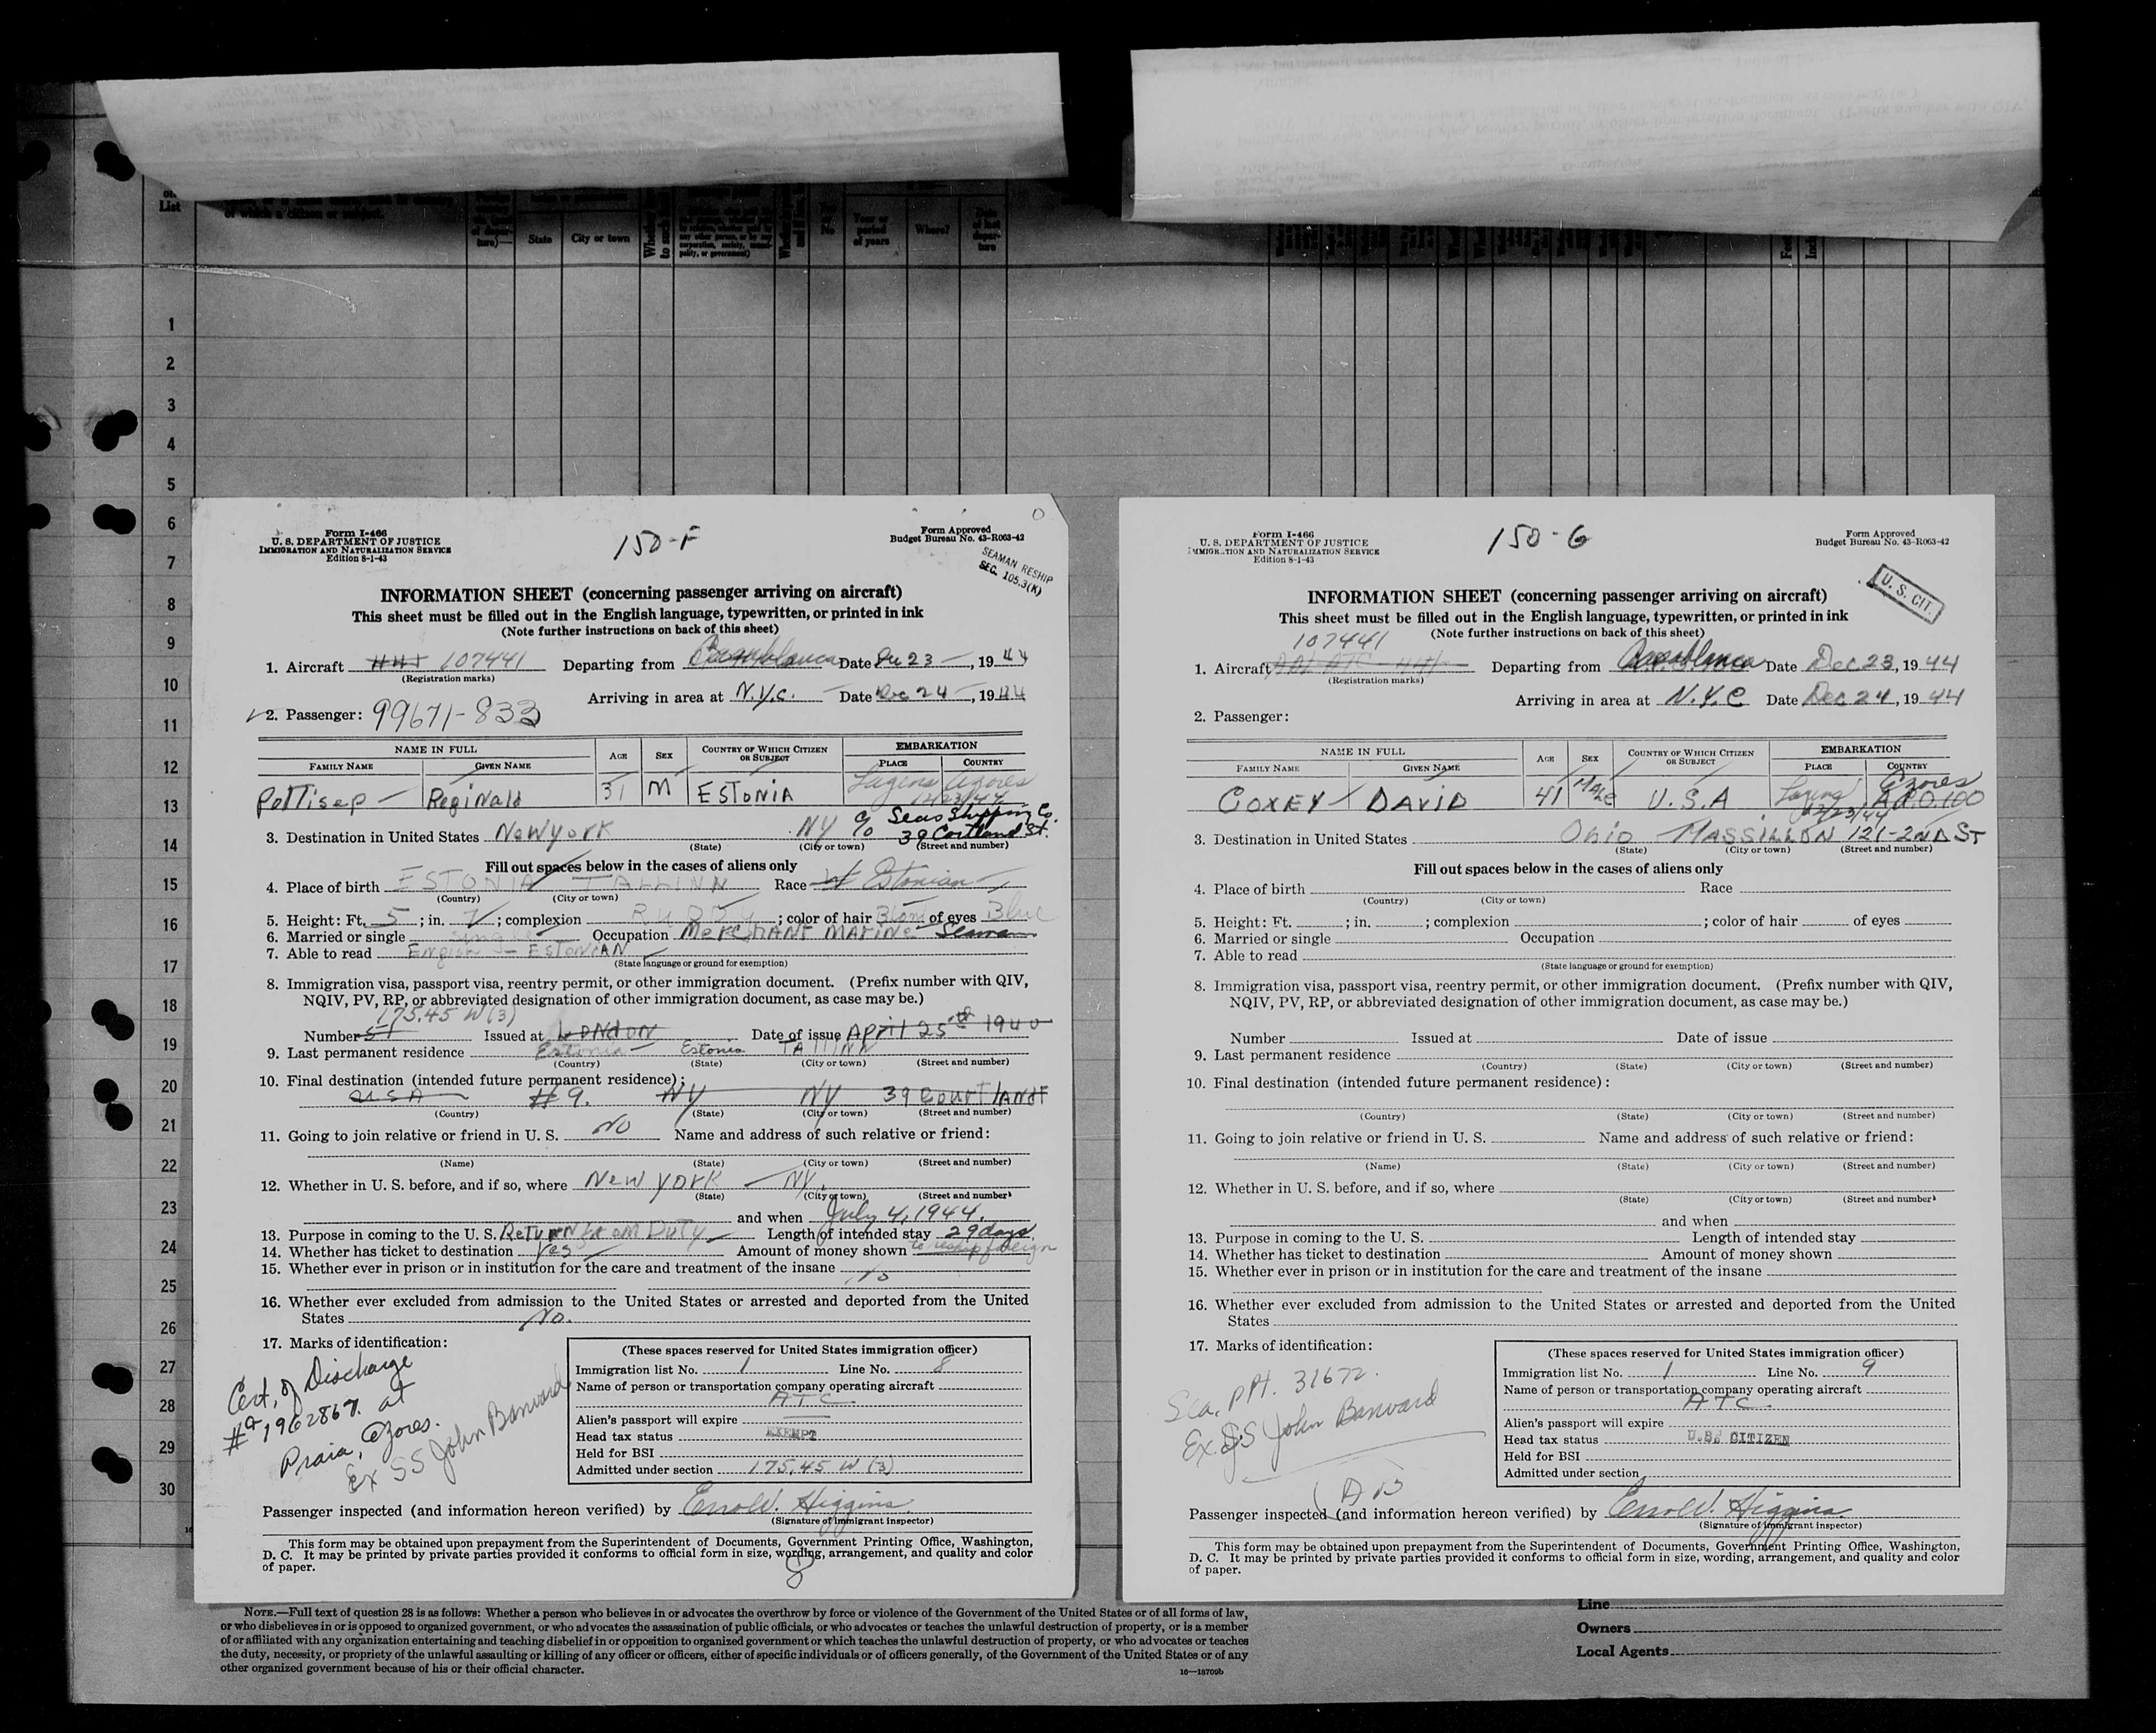 List
State
City or town
Year or period of years
Where?
1
2
3
4
5
6
7
8
9
10
11
12
13
14
15
16
17
18
19
20
21
22
23
24
25
26
27
28
29
30
Form I-466
U. S. DEPARTMENT OF JUSTICE
IMMIGRATION AND NATURALIZATION SERVICE
Edition 8-1-43
150-F
Form Approved
Budget Bureau No. 43-R063-42
SEAMAN RESHIP
SEC. 105.3(K)
INFORMATION SHEET (concerning passenger arriving on aircraft)
This sheet must be filled out in the English language, typewritten, or printed in ink
(Note further instructions on back of this sheet)
1. Aircraft 107441 Departing from Casablanca Date Dec 23, 1944
(Registration marks)
Arriving in area at N.Y.C. Date Dec 24, 1944
2. Passenger: 99671-833
NAME IN FULL AGE SEX COUNTRY OF WHICH CITIZEN OR SUBJECT EMBARKATION
FAMILY NAME GIVEN NAME PLACE COUNTRY
Poltisep Reginald 31 M ESTONIA Lagens Azores
12/23/44
3. Destination in United States New York NY c/o Seas Shipping Co.
39 Cortland St.
(State) (City or town) (Street and number)
Fill out spaces below in the cases of aliens only
4. Place of birth ESTONIA TALLINN Race Estonian
(Country) (City or town)
5. Height: Ft. 5; in. 7; complexion RUDDY; color of hair Blond of eyes Blue
6. Married or single single Occupation Merchant Marine Seaman
7. Able to read English - ESTONIAN
(State language or ground for exemption)
8. Immigration visa, passport visa, reentry permit, or other immigration document. (Prefix number with QIV,
NQIV, PV, RP, or abbreviated designation of other immigration document, as case may be.)
175.45 W(3)
Number 51 Issued at LONDON Date of issue April 25th 1940
9. Last permanent residence Estonia Estonia TALLINN
(Country) (State) (City or town) (Street and number)
10. Final destination (intended future permanent residence):
USA #9. NY NY 39 CourtlANdt
(Country) (State) (City or town) (Street and number)
11. Going to join relative or friend in U. S. No Name and address of such relative or friend:
(Name) (State) (City or town) (Street and number)
12. Whether in U. S. before, and if so, where New York NY.
(State) (City or town) (Street and number)
and when July 4, 1944.
13. Purpose in coming to the U. S. RETURN FROM DUTY Length of intended stay 29 days
14. Whether has ticket to destination yes Amount of money shown to reship foreign
15. Whether ever in prison or in institution for the care and treatment of the insane No
16. Whether ever excluded from admission to the United States or arrested and deported from the United
States No.
17. Marks of identification:
Cert. of Discharge
at
Praia, Azores.
Ex SS John Banvard
(These spaces reserved for United States immigration officer)
Immigration list No. 1 Line No. 8
Name of person or transportation company operating aircraft
ATC
Alien's passport will expire
Head tax status EXEMPT
Held for BSI
Admitted under section 175.45 W (3)
Passenger inspected (and information hereon verified) by Errol W. Higgins.
(Signature of immigrant inspector)
This form may be obtained upon prepayment from the Superintendent of Documents, Government Printing Office, Washington,
D. C. It may be printed by private parties provided it conforms to official form in size, wording, arrangement, and quality and color
of paper.
8
Form I-466
U. S. DEPARTMENT OF JUSTICE
IMMIGRATION AND NATURALIZATION SERVICE
Edition 8-1-43
150-G
Form Approved
Budget Bureau No. 43-R063-42
U. S. CIT.
INFORMATION SHEET (concerning passenger arriving on aircraft)
This sheet must be filled out in the English language, typewritten, or printed in ink
(Note further instructions on back of this sheet)
107441
1. Aircraft Departing from Casablanca Date Dec 23, 1944
(Registration marks)
Arriving in area at N.Y.C Date Dec 24, 1944
2. Passenger:
NAME IN FULL AGE SEX COUNTRY OF WHICH CITIZEN OR SUBJECT EMBARKATION
FAMILY NAME GIVEN NAME PLACE COUNTRY
COXEY DAVID 41 MALE U.S.A Lagens Azores
12/23/44 A.P.O. 100
3. Destination in United States Ohio MASSILLON 121-2ND ST
(State) (City or town) (Street and number)
Fill out spaces below in the cases of aliens only
4. Place of birth Race
(Country) (City or town)
5. Height: Ft. ; in. ; complexion ; color of hair of eyes
6. Married or single Occupation
7. Able to read
(State language or ground for exemption)
8. Immigration visa, passport visa, reentry permit, or other immigration document. (Prefix number with QIV,
NQIV, PV, RP, or abbreviated designation of other immigration document, as case may be.)
Number Issued at Date of issue
9. Last permanent residence
(Country) (State) (City or town) (Street and number)
10. Final destination (intended future permanent residence):
(Country) (State) (City or town) (Street and number)
11. Going to join relative or friend in U. S. Name and address of such relative or friend:
(Name) (State) (City or town) (Street and number)
12. Whether in U. S. before, and if so, where
(State) (City or town) (Street and number)
and when
13. Purpose in coming to the U. S. Length of intended stay
14. Whether has ticket to destination Amount of money shown
15. Whether ever in prison or in institution for the care and treatment of the insane
16. Whether ever excluded from admission to the United States or arrested and deported from the United
States
17. Marks of identification:
Sea. ppt. 31672.
Ex SS John Banvard
(These spaces reserved for United States immigration officer)
Immigration list No. 1 Line No. 9
Name of person or transportation company operating aircraft
ATC.
Alien's passport will expire
Head tax status U.S. CITIZEN
Held for BSI
Admitted under section
Passenger inspected (and information hereon verified) by Errol W. Higgins.
(Signature of immigrant inspector)
This form may be obtained upon prepayment from the Superintendent of Documents, Government Printing Office, Washington,
D. C. It may be printed by private parties provided it conforms to official form in size, wording, arrangement, and quality and color
of paper.
NOTE.—Full text of question 28 is as follows: Whether a person who believes in or advocates the overthrow by force or violence of the Government of the United States or of all forms of law,
or who disbelieves in or is opposed to organized government, or who advocates the assassination of public officials, or who advocates or teaches the unlawful destruction of property, or is a member
of or affiliated with any organization entertaining and teaching disbelief in or opposition to organized government or which teaches the unlawful destruction of property, or who advocates or teaches
the duty, necessity, or propriety of the unlawful assaulting or killing of any officer or officers, either of specific individuals or of officers generally, of the Government of the United States or of any
other organized government because of his or their official character.
16—18709b
Line
Owners
Local Agents